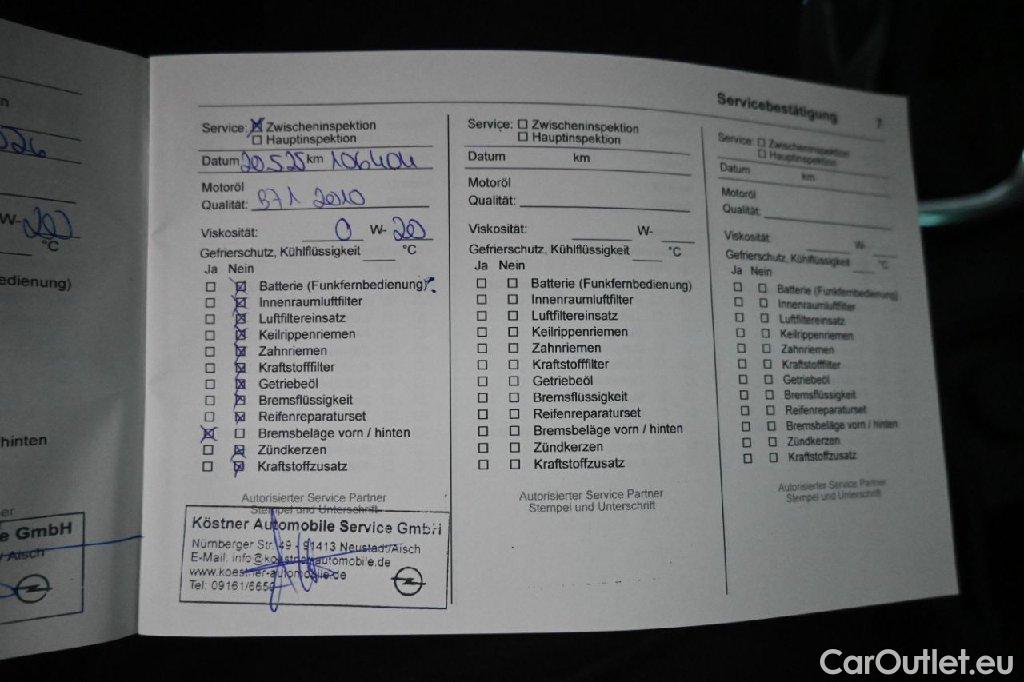 n
026
W- 20
°C
edienung)
hinten
er
e GmbH
/ Aisch
Servicebestätigung 7
Service: Zwischeninspektion
Hauptinspektion
Datum 20.5.25 km 106404
Motoröl
Qualität: B71 2010
Viskosität: 0 W- 20
Gefrierschutz, Kühlflüssigkeit °C
Ja Nein
Batterie (Funkfernbedienung)
Innenraumluftfilter
Luftfiltereinsatz
Keilrippenriemen
Zahnriemen
Kraftstofffilter
Getriebeöl
Bremsflüssigkeit
Reifenreparaturset
Bremsbeläge vorn / hinten
Zündkerzen
Kraftstoffzusatz
Autorisierter Service Partner
Stempel und Unterschrift
Köstner Automobile Service GmbH
Nürnberger Str. 49 - 91413 Neustadt/Aisch
E-Mail: info@koestner-automobile.de
www.koestner-automobile.de
Tel: 09161/6650
Service: Zwischeninspektion
Hauptinspektion
Datum km
Motoröl
Qualität:
Viskosität: W-
Gefrierschutz, Kühlflüssigkeit °C
Ja Nein
Batterie (Funkfernbedienung)
Innenraumluftfilter
Luftfiltereinsatz
Keilrippenriemen
Zahnriemen
Kraftstofffilter
Getriebeöl
Bremsflüssigkeit
Reifenreparaturset
Bremsbeläge vorn / hinten
Zündkerzen
Kraftstoffzusatz
Autorisierter Service Partner
Stempel und Unterschrift
Service: Zwischeninspektion
Hauptinspektion
Datum km
Motoröl
Qualität:
Viskosität: W-
Gefrierschutz, Kühlflüssigkeit °C
Ja Nein
Batterie (Funkfernbedienung)
Innenraumluftfilter
Luftfiltereinsatz
Keilrippenriemen
Zahnriemen
Kraftstofffilter
Getriebeöl
Bremsflüssigkeit
Reifenreparaturset
Bremsbeläge vorn / hinten
Zündkerzen
Kraftstoffzusatz
Autorisierter Service Partner
Stempel und Unterschrift
CarOutlet.eu